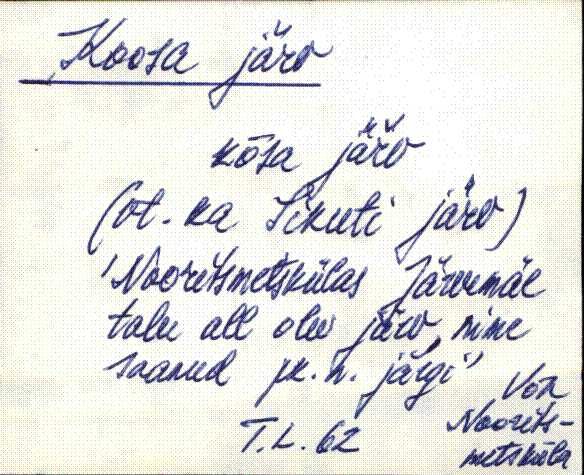 Koosa järv
kōsa järv
(vt. ka Sikuti järv)
'Nooritsmetskülas Järvemäe
talu all olev järv, nime
saanud pk. n. järgi'
Vōn
T.L. 62 Noorits-
metsküla